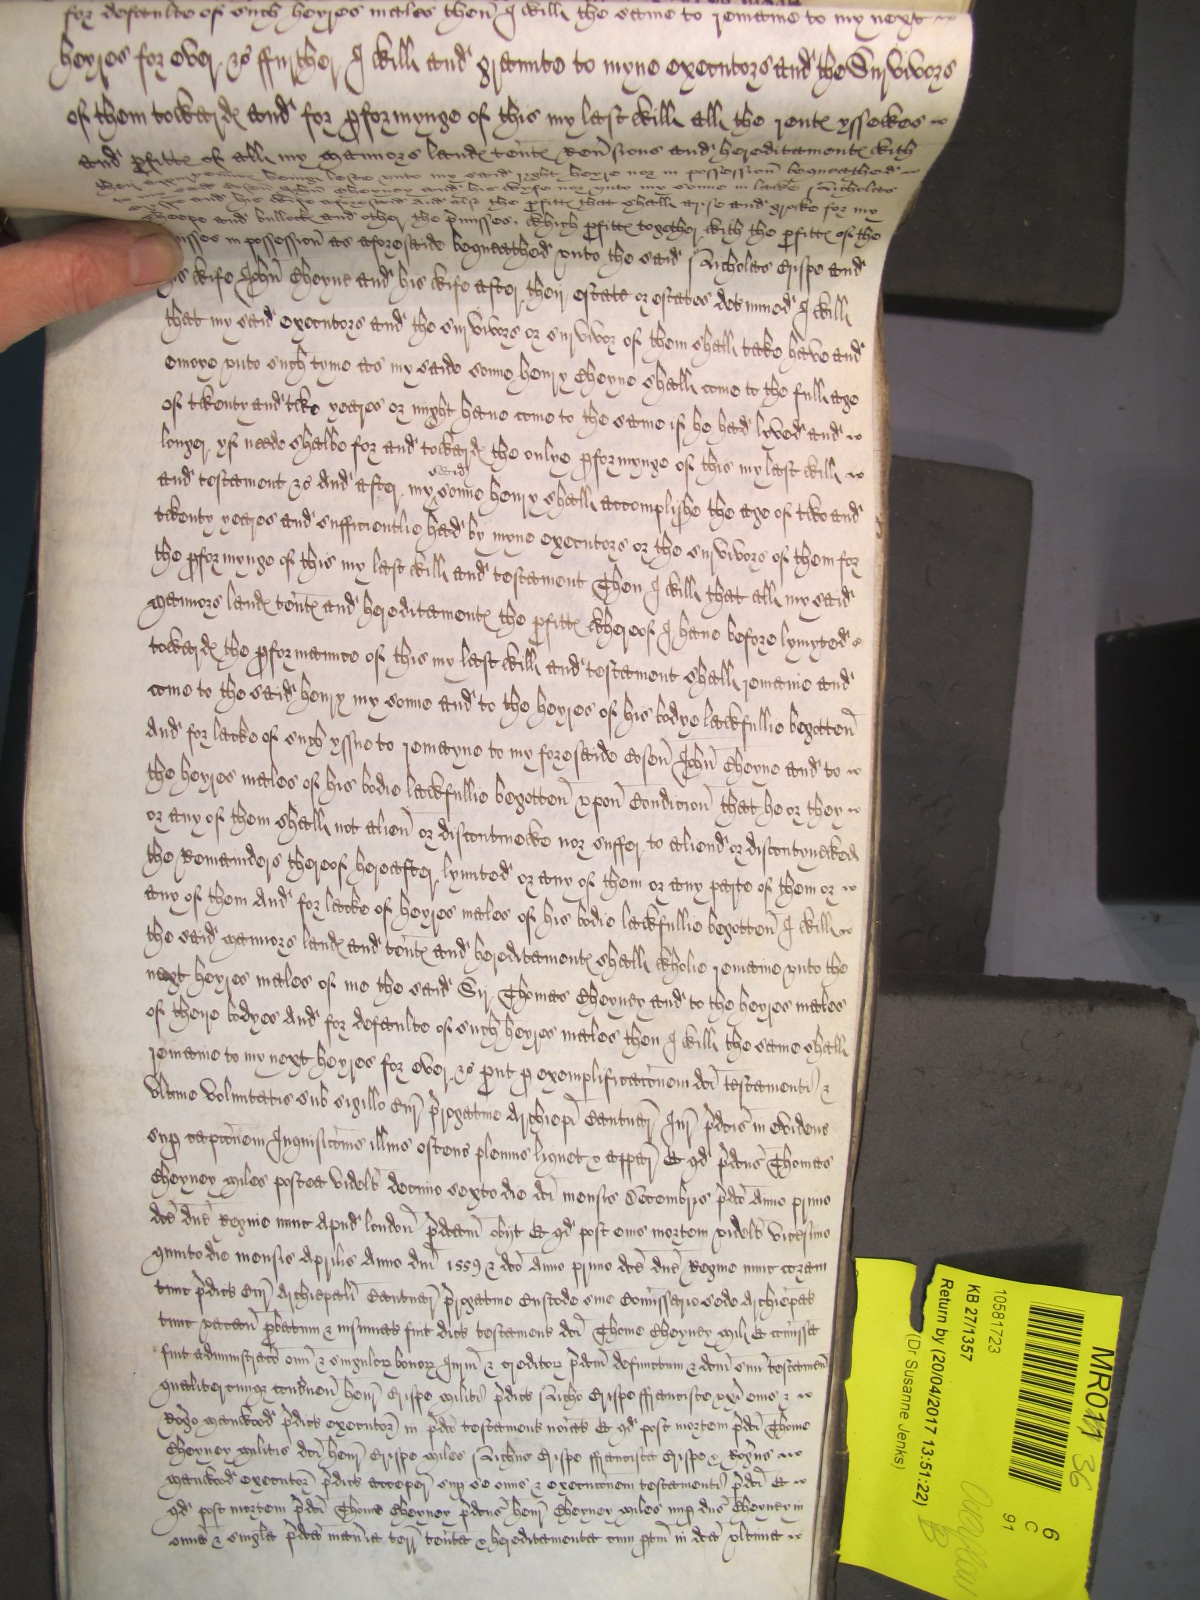 for defaulte of such heyres males then I will the same to remaine to my next
heyres for ever. And ffurther I will and graunte to myne executors and the Survivors
of them towardes and for pformynge of this my last will all the rentes yssewes
and pfittes of all my mannors landes tentes Revsions and hereditamentes with
beinge lefte unto my said right heyre nor in possession bequeathed
John Cheyney and his wyfe nor unto my sonne in lawe Nicholas
Crispe and his wife aforesaid and also the pfittes that shall arise and growe for my
sheepe and bullocks and other the pmisses. which pfittes together with the pfittes of the
pmisses in possession as aforesaide bequeathed unto the said Nicholas Crispe and
his wife John Cheyne and his wife after their estate or estates detmined I will
that my said executors and the survivors or survivor of them shall take have and
enioye unto such tyme as my saide sonne henry Cheyne shall come to the full age
of twenty and two yeares or might have come to the same if he had lyved and
longer yf neede shalbe for and towardes the onlye pformynge of this my last will
and testament And after my said sonne henry shall accomplishe the age of two and
twenty yeares and sufficientlie had by myne executors or the survivors of them for
the pformynge of this my last will and testament Then I will that all my said
mannors landes tentes and hereditamentes the pfittes whereof I have before lymyted
towardes the pformance of this my last will and testament shall remaine and
come to the said henry my sonne and to the heyres of his bodye lawfullie begotten
And for lacke of such yssue to remayne to my foresaide Cosen John Cheyne and to
the heyres males of his bodie lawfullie begotten upon Condicion that he or they
or any of them shall not alien or discontinewe nor suffer to aliend or discontynewed
the Remainders thereof hereafter lymited or any of them or any parte of them or
any of them And for lacke of heyres males of his bodie lawfullie begotten I will
the said mannors landes and tentes and hereditamentes shall wholie remaine unto the
next heyres males of me the said Sir Thomas Cheyney and to the heyres males
of there bodyes And for defaulte of such heyres males then I will the same shall
remaine to my next heyres for ever. put p exemplificacõnem dci testamenti &
ultime voluntatis sub sigillo Cur progative Archiepi Cantuar Jur pdcis in evidenc
sup capcõnem Inquisicõnis illius ostens plenius liquet & apparet Et qd pdcus Thomas
Cheyney miles postea videlt decimo sexto die dci mensis Decembris pdco Anno primo
dce dne Regine nunc apud london pdcam obijt Et qd post eius mortem videlt vicesimo
quinto die mensis Aprilis Anno dni 1559 & dco Anno primo dce dne Regine nunc coram
tunc pdice Cur Archiepali Cantuar progative Custode sive Comissario sede Archiepali
tunc vacan pbatum & insinuat fuit dict testament dci Thome Cheyney mili Et comissa
fuit administracõ omi & singulor bonor Jurium & creditor pdcm defunctum & dcm suum testament
qualitercunque concernen henr Crispe militi pdict Nicho Crispe ffrancisce uxi eius &
Rogo Manwood pdict executor in pdco testament noiat Et qd post mortem pdci Thome
Cheyney militis dci henr Crispe miles Nichus Crispe ffrancisca Crispe & Rogus
Manwood executor pdict acceper sup se onus & execucõnem testamenti pdci Et
qd post mortem pdci Thome Cheyney pdcus henr Cheyney miles nup dns Cheyney in
omia & singla pdca mania terr tenta & hereditamenta cum ptin in dca ultima
MR01
36
10581723
KB 27/1357
Return by (20/04/2017 13:51:22)
(Dr Susanne Jenks)
6
C
91